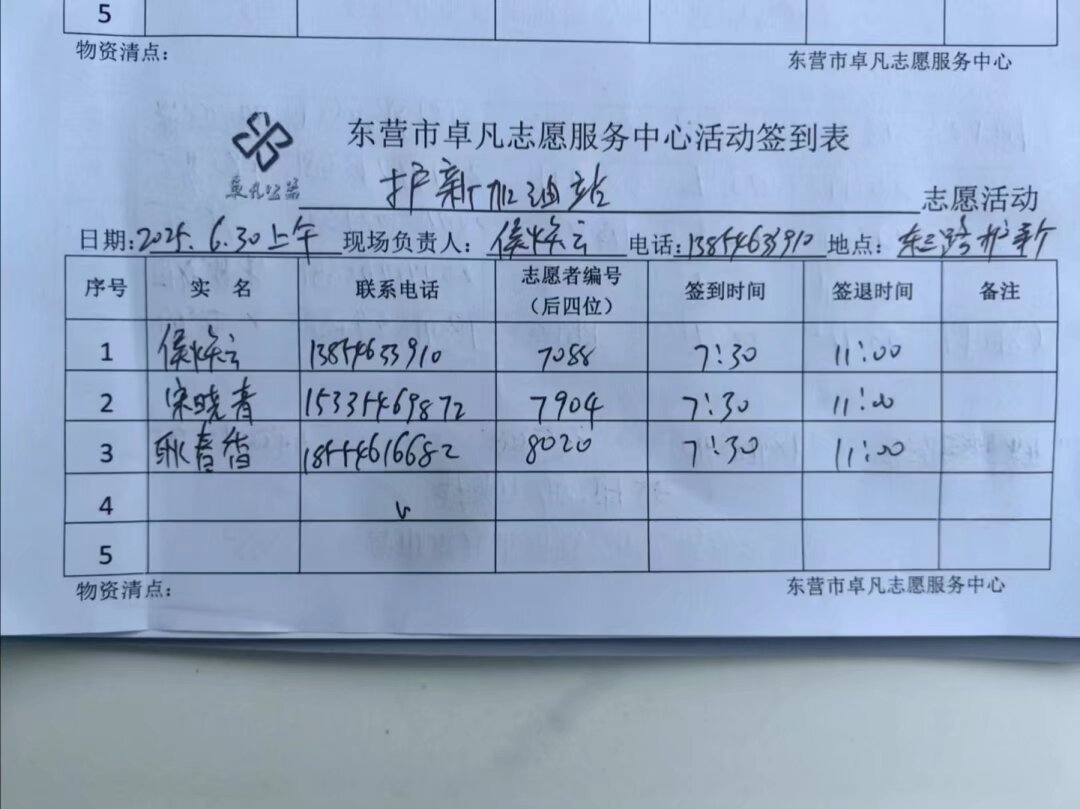 5
物资清点：
东营市卓凡志愿服务中心
东营市卓凡志愿服务中心活动签到表
卓凡公益
护新加油站 志愿活动
日期：2025.6.30上午 现场负责人：侯焕云 电话：13854633910 地点：东三路护新
序号 实 名 联系电话 志愿者编号（后四位） 签到时间 签退时间 备注
1 侯焕云 13854633910 7088 7:30 11:00
2 宋晓青 15335469872 7904 7:30 11:00
3 耿春香 18554616682 8020 7:30 11:00
4
5
物资清点：
东营市卓凡志愿服务中心